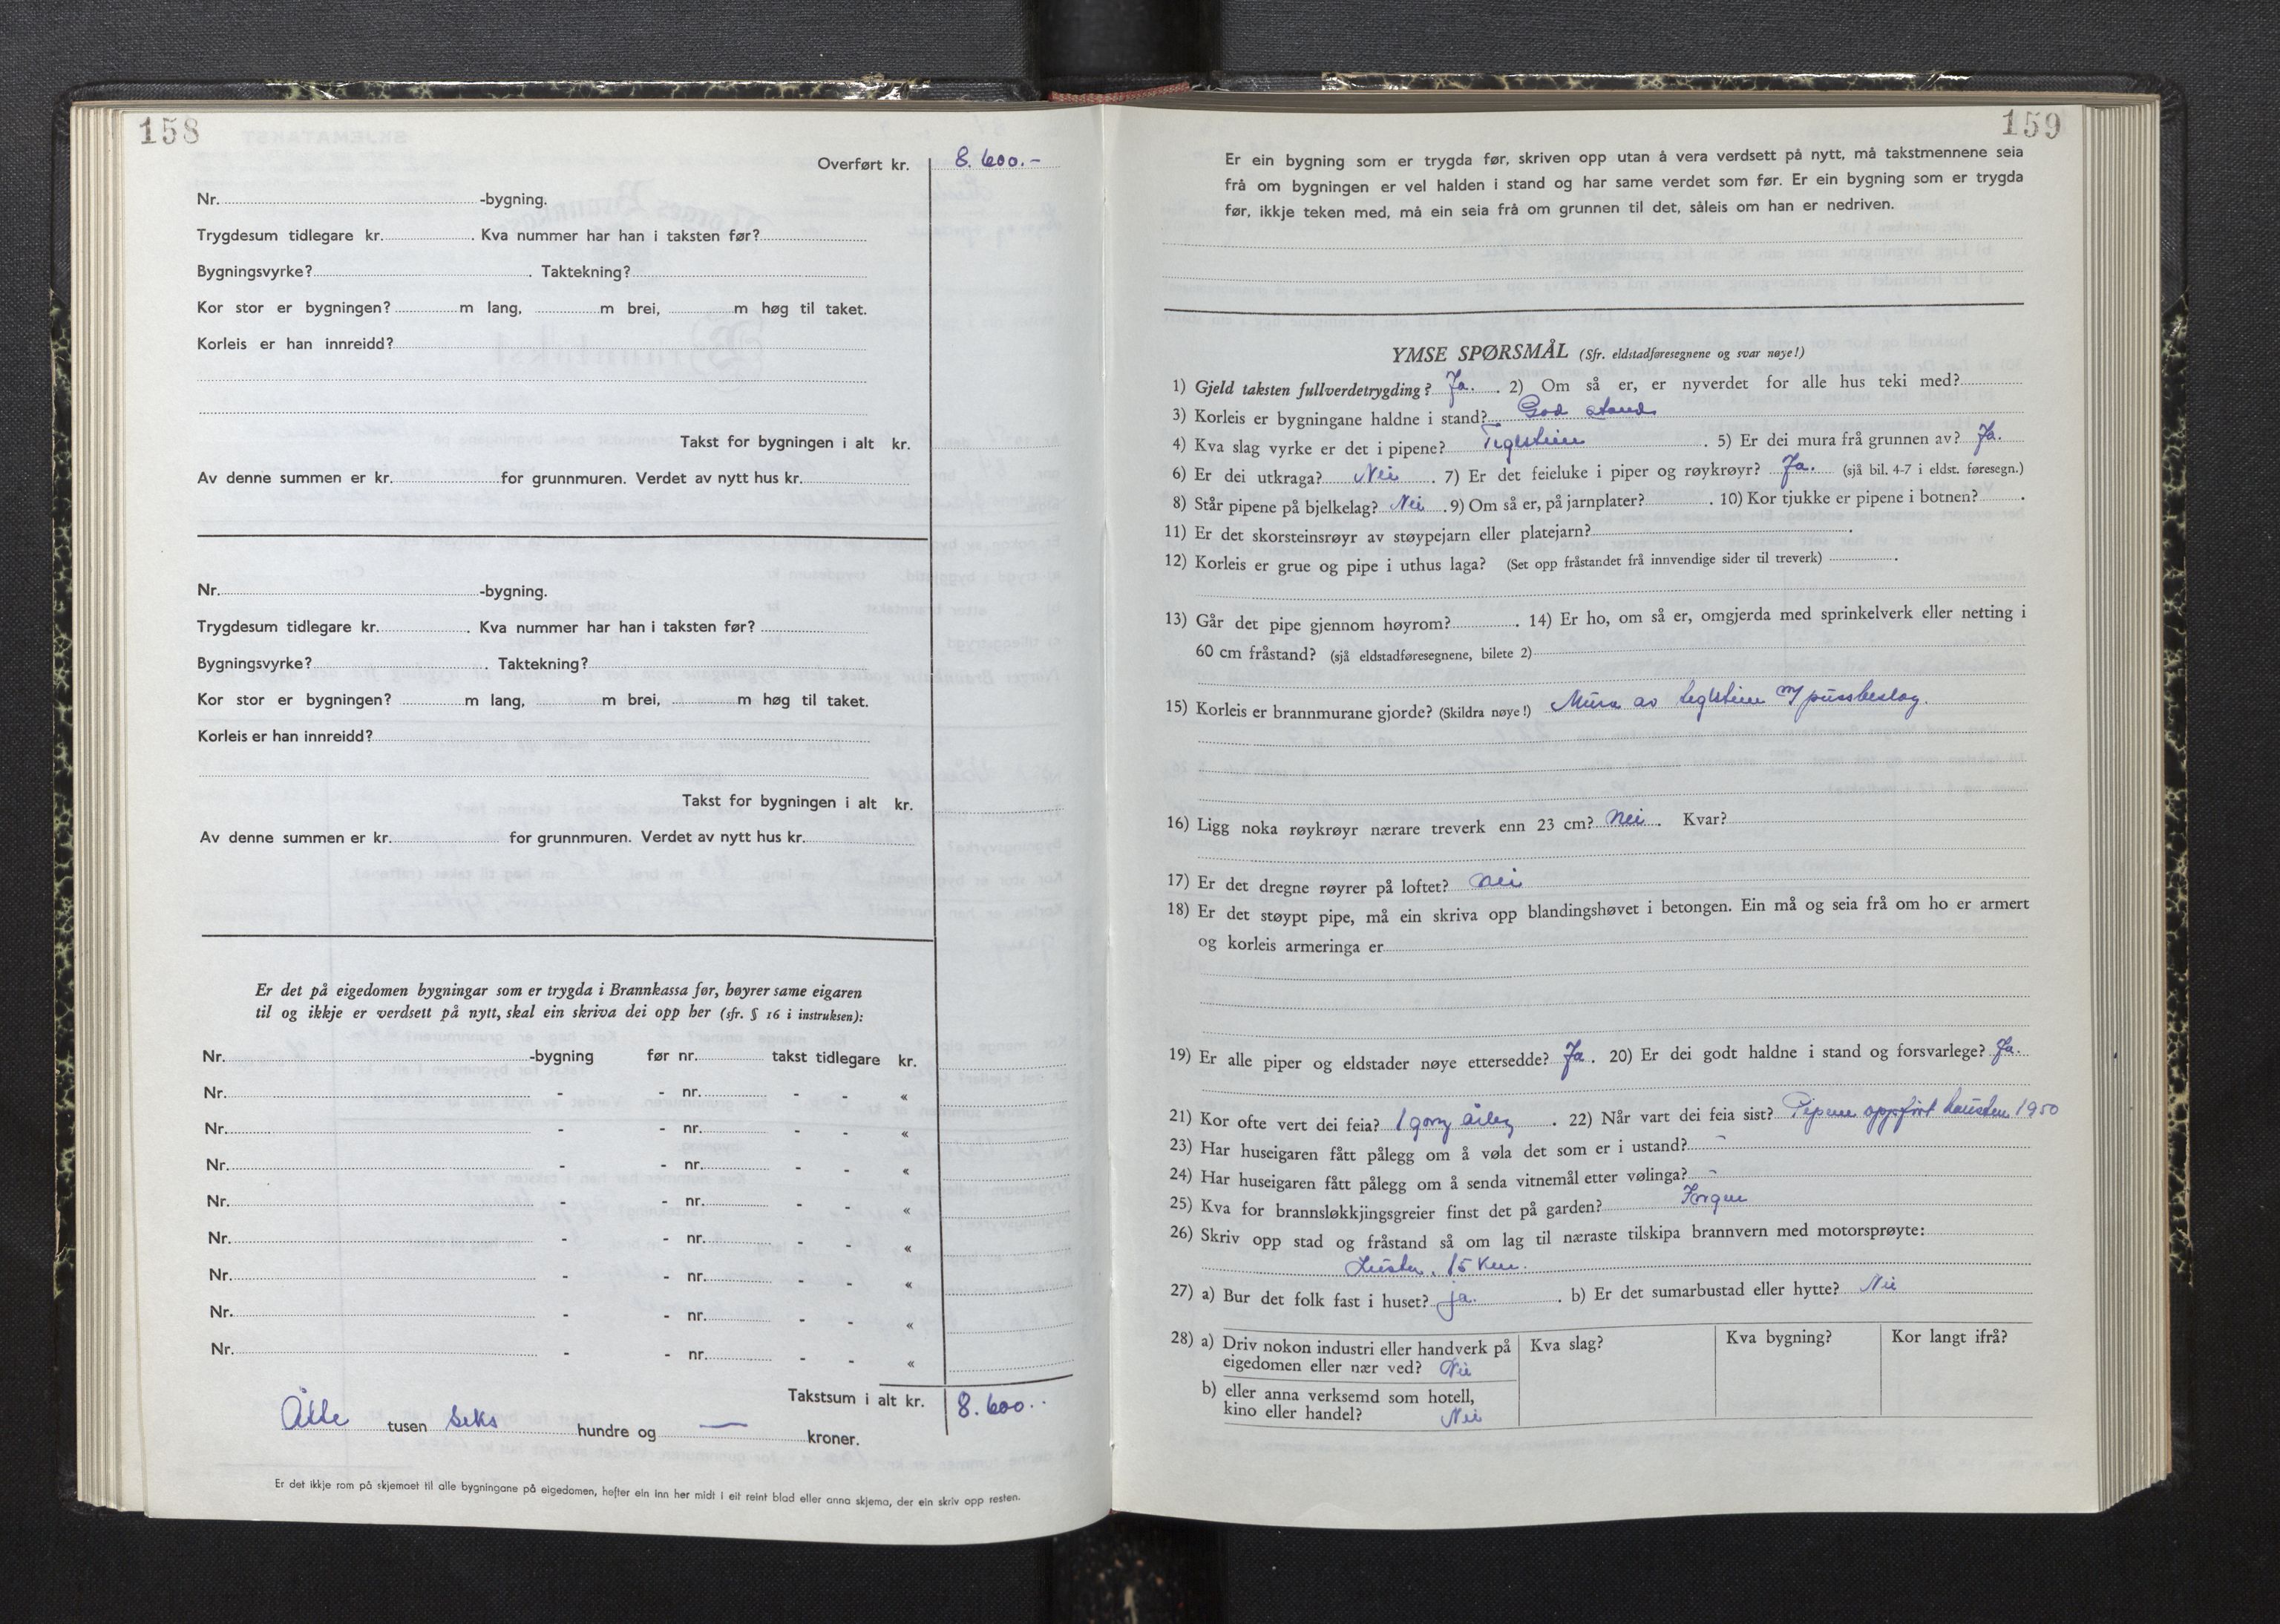 158
Overført kr. 8.600.-
Nr. -bygning.
Trygdesum tidlegare kr. . Kva nummer har han i taksten før?
Bygningsvyrke? . Taktekning?
Kor stor er bygningen? m lang, m brei, m høg til taket.
Korleis er han innreidd?
Takst for bygningen i alt kr.
Av denne summen er kr. for grunnmuren. Verdet av nytt hus kr.
Nr. -bygning.
Trygdesum tidlegare kr. . Kva nummer har han i taksten før?
Bygningsvyrke? . Taktekning?
Kor stor er bygningen? m lang, m brei, m høg til taket.
Korleis er han innreidd?
Takst for bygningen i alt kr.
Av denne summen er kr. for grunnmuren. Verdet av nytt hus kr.
Er det på eigedomen bygningar som er trygda i Brannkassa før, høyrer same eigaren
til og ikkje er verdsett på nytt, skal ein skriva dei opp her (sfr. § 16 i instruksen):
Nr. -bygning før nr. takst tidlegare kr.
Nr. - - nr. - - «
Nr. - - nr. - - «
Nr. - - nr. - - «
Nr. - - nr. - - «
Nr. - - nr. - - «
Nr. - - nr. - - «
Nr. - - nr. - - «
Nr. - - nr. - - «
Takstsum i alt kr. 8.600..
Åtte tusen seks hundre og — kroner.
Er det ikkje rom på skjemaet til alle bygningane på eigedomen, hefter ein inn her midt i eit reint blad eller anna skjema, der ein skriv opp resten.
159
Er ein bygning som er trygda før, skriven opp utan å vera verdsett på nytt, må takstmennene seia
frå om bygningen er vel halden i stand og har same verdet som før. Er ein bygning som er trygda
før, ikkje teken med, må ein seia frå om grunnen til det, såleis om han er nedriven.
YMSE SPØRSMÅL (Sfr. eldstadføresegnene og svar nøye!)
1) Gjeld taksten fullverdetrygding? Ja. . 2) Om så er, er nyverdet for alle hus teki med?
3) Korleis er bygningane haldne i stand? God stand
4) Kva slag vyrke er det i pipene? Teglstein . 5) Er dei mura frå grunnen av? Ja.
6) Er dei utkraga? Nei . 7) Er det feieluke i piper og røykrøyr? Ja. (sjå bil. 4-7 i eldst. føresegn.)
8) Står pipene på bjelkelag? Nei . 9) Om så er, på jarnplater? . 10) Kor tjukke er pipene i botnen? .
11) Er det skorsteinsrøyr av støypejarn eller platejarn? .
12) Korleis er grue og pipe i uthus laga? (Set opp fråstandet frå innvendige sider til treverk) .
13) Går det pipe gjennom høyrom? . 14) Er ho, om så er, omgjerda med sprinkelverk eller netting i
60 cm fråstand? (sjå eldstadføresegnene, bilete 2)
15) Korleis er brannmurane gjorde? (Skildra nøye!) Mura av teglstein m/ pussbeslag.
16) Ligg noka røykrøyr nærare treverk enn 23 cm? Nei . Kvar?
17) Er det dregne røyrer på loftet? Nei
18) Er det støypt pipe, må ein skriva opp blandingshøvet i betongen. Ein må og seia frå om ho er armert
og korleis armeringa er
19) Er alle piper og eldstader nøye ettersedde? Ja . 20) Er dei godt haldne i stand og forsvarlege? Ja.
21) Kor ofte vert dei feia? 1 gong årleg . 22) Når vart dei feia sist? Pipene oppført hausten 1950
23) Har huseigaren fått pålegg om å vøla det som er i ustand? -
24) Har huseigaren fått pålegg om å senda vitnemål etter vølinga? -
25) Kva for brannsløkkjingsgreier finst det på garden?
26) Skriv opp stad og fråstand så om lag til næraste tilskipa brannvern med motorsprøyte:
Luster, 15 km.
27) a) Bur det folk fast i huset? ja. . b) Er det sumarbustad eller hytte? Nei
28) a) Driv nokon industri eller handverk på eigedomen eller nær ved? Nei Kva slag? Kva bygning? Kor langt ifrå?
b) eller anna verksemd som hotell,
kino eller handel? Nei